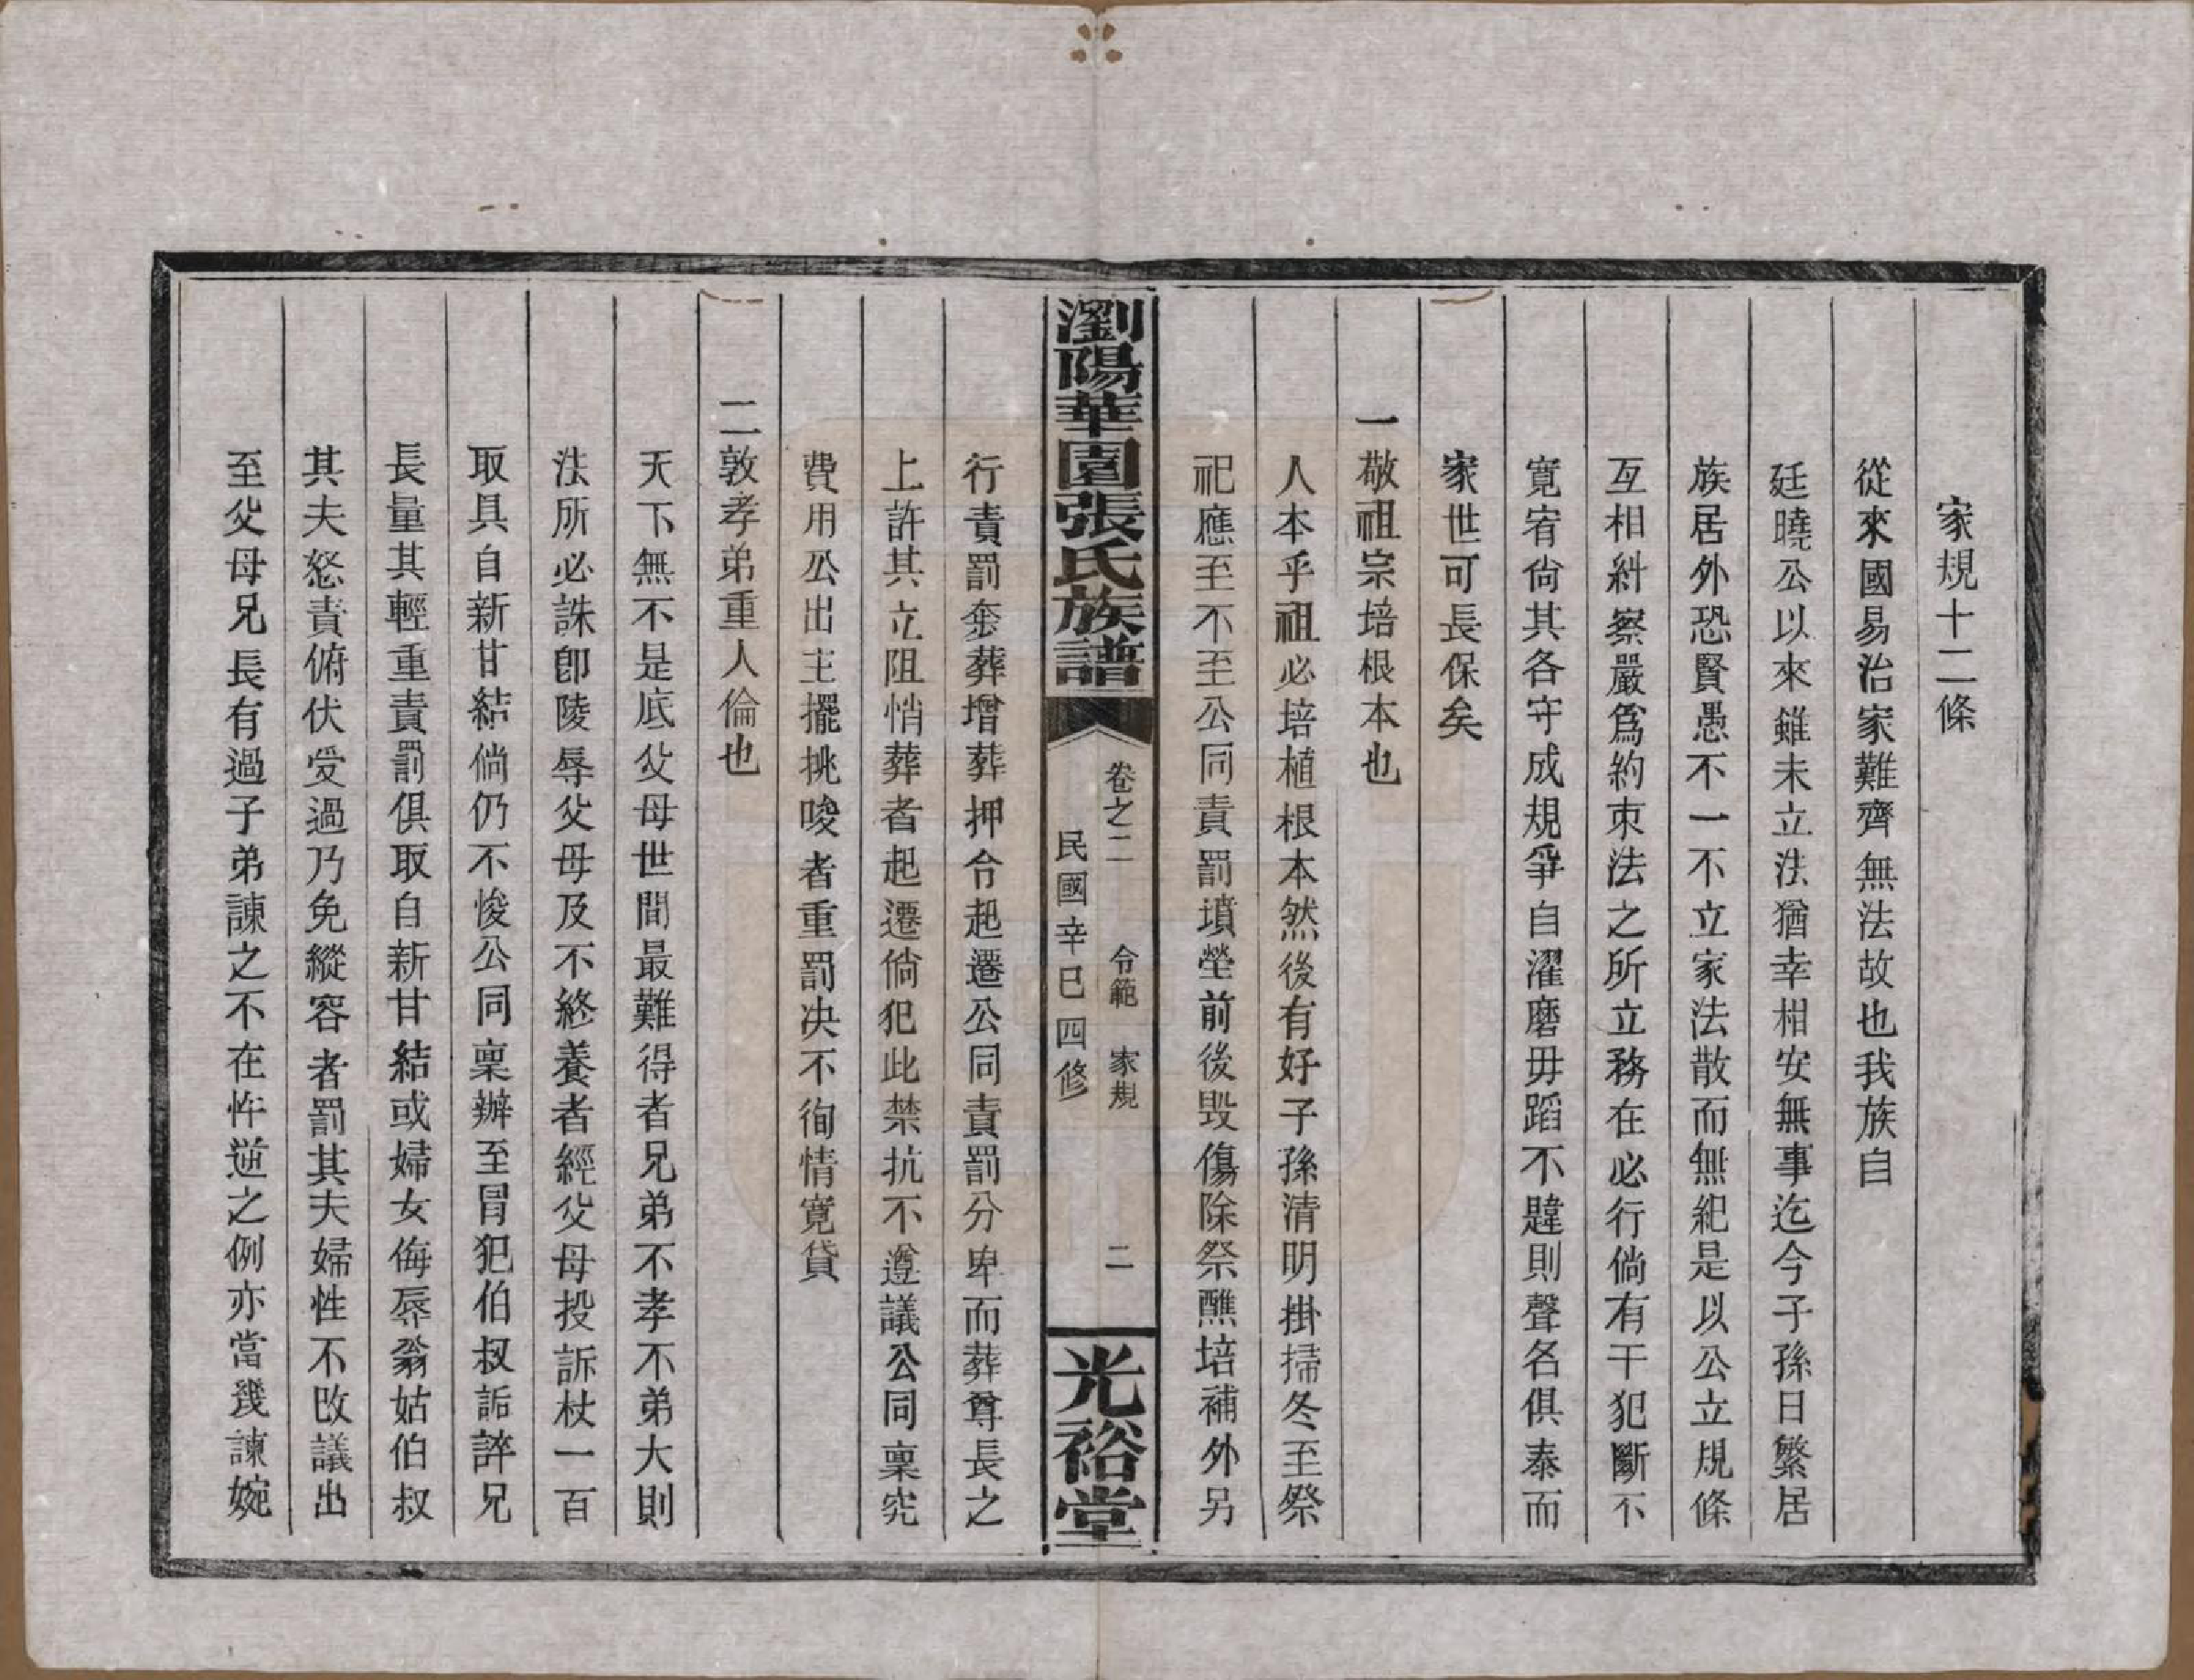 家規十二條
從來國易治家難齊無法故也我族自
廷曉公以來雖未立法猶幸相安無事迄今子孫日繁居
族居外恐賢愚不一不立家法散而無紀是以公立規條
互相糾察嚴爲約束法之所立務在必行倘有干犯斷不
寬宥倘其各守成規爭自濯磨毋蹈不韙則聲名俱泰而
家世可長保矣
一敬祖宗培根本也
人本乎祖必培植根本然後有好子孫清明掛掃冬至祭
祀應至不至公同責罰墳塋前後毀傷除祭醮培補外另
瀏陽華園張氏族譜
卷之二 令範 家規 二
民國辛巳四修
光裕堂
行責罰叅葬增葬押令起遷公同責罰分卑而葬尊長之
上許其立阻悄葬者起遷倘犯此禁抗不遵議公同稟究
費用公出主擺挑唆者重罰决不徇情寬貸
二敦孝弟重人倫也
天下無不是底父母世間最難得者兄弟不孝不弟大則
法所必誅卽陵辱父母及不終養者經父母投訴杖一百
取具自新甘結倘仍不悛公同稟辦至冒犯伯叔詬誶兄
長量其輕重責罰俱取自新甘結或婦女侮辱翁姑伯叔
其夫怒責俯伏受過乃免縱容者罰其夫婦性不改議出
至父母兄長有過子弟諫之不在忤逆之例亦當幾諫婉